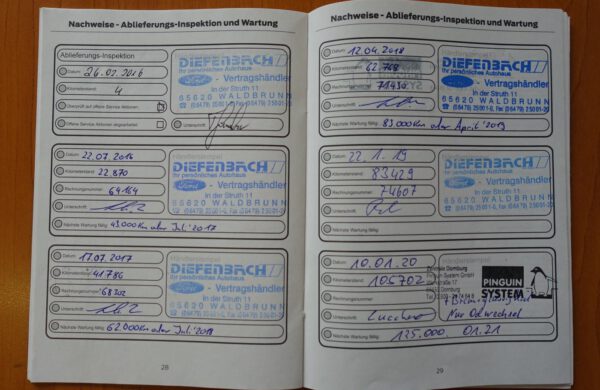 Nachweise - Ablieferungs-Inspektion und Wartung
Ablieferungs-Inspektion
Datum: 26.02.2016
Kilometerstand: 4
Überprüft auf offene Service Aktionen:
Offene Service Aktionen abgearbeitet:
Unterschrift:
DIEFENBACH
Ihr persönliches Autohaus
Ford - Vertragshändler
In der Struth 11
65620 WALDBRUNN
Datum: 22.07.2016
Kilometerstand: 22.870
Rechnungsnummer: 64164
Unterschrift:
Nächste Wartung fällig: 43.000 Km oder Juli 2017
Händlerstempel
DIEFENBACH
Ihr persönliches Autohaus
Ford - Vertragshändler
In der Struth 11
65620 WALDBRUNN
Datum: 17.07.2017
Kilometerstand: 41.786
Rechnungsnummer: 68202
Unterschrift:
Nächste Wartung fällig: 62.000 Km oder Juli 2018
DIEFENBACH
Ihr persönliches Autohaus
Ford - Vertragshändler
In der Struth 11
65620 WALDBRUNN
28
Nachweise - Ablieferungs-Inspektion und Wartung
Datum: 12.04.2018
Kilometerstand: 62.768
Rechnungsnummer: 71430
Unterschrift:
Nächste Wartung fällig: 83.000 Km oder April 2019
DIEFENBACH
Ihr persönliches Autohaus
Ford - Vertragshändler
In der Struth 11
65620 WALDBRUNN
Datum: 22.1.19
Kilometerstand: 83429
Rechnungsnummer: 74607
Unterschrift:
Nächste Wartung fällig:
Händlerstempel
DIEFENBACH
Ihr persönliches Autohaus
Ford - Vertragshändler
In der Struth 11
65620 WALDBRUNN
Datum: 10.01.20
Kilometerstand: 105702
Rechnungsnummer:
Unterschrift:
Nächste Wartung fällig: 125.000 01.21
Händlerstempel
Pinguin System GmbH
PINGUIN
SYSTEM
Nur Ölwechsel
29